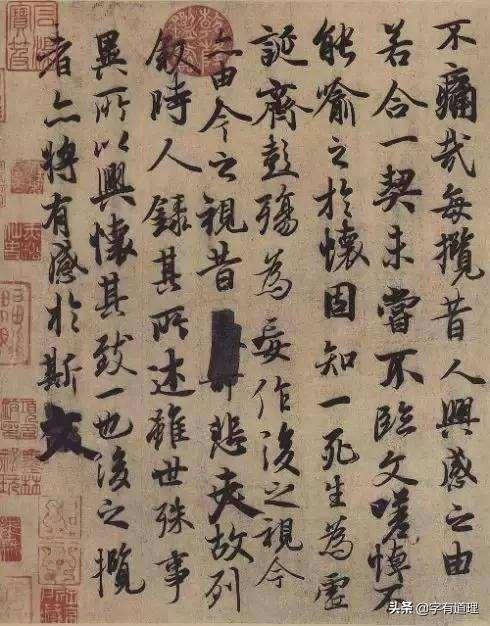 不痛哉每攬昔人興感之由
若合一契未嘗不臨文嗟悼不
能喻之於懷固知一死生為虛
誕齊彭殤為妄作後之視今
亦由今之視昔悲夫故列
叙時人錄其所述雖世殊事
異所以興懷其致一也後之攬
者亦將有感於斯文
头条 @字有道理